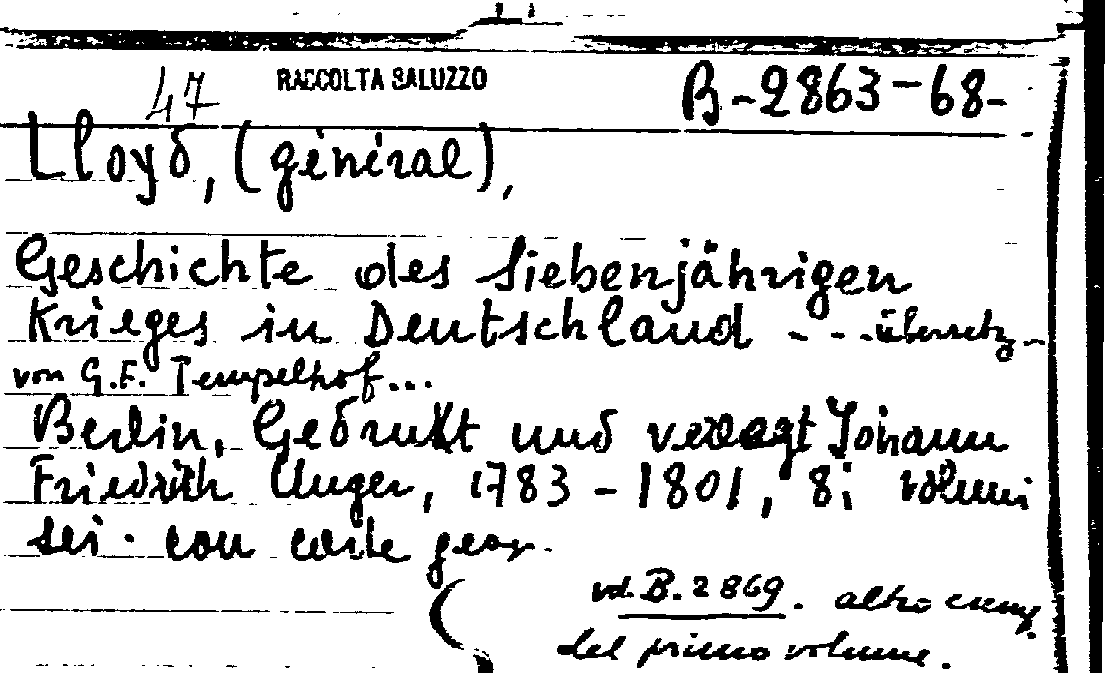 47 RACCOLTA SALUZZO B-2863-68-
Lloyd, (général),
Geschichte des Siebenjährigen
Krieges in Deutschland - - - übersetz-
von G.F. Tempelhof...
Berlin, Gedrukt und verlegt Johann
Friedrich Unger, 1783-1801, 8; volumi
sei. con carte geogr.
vd. B. 2869. altro esemp.
del primo volume.